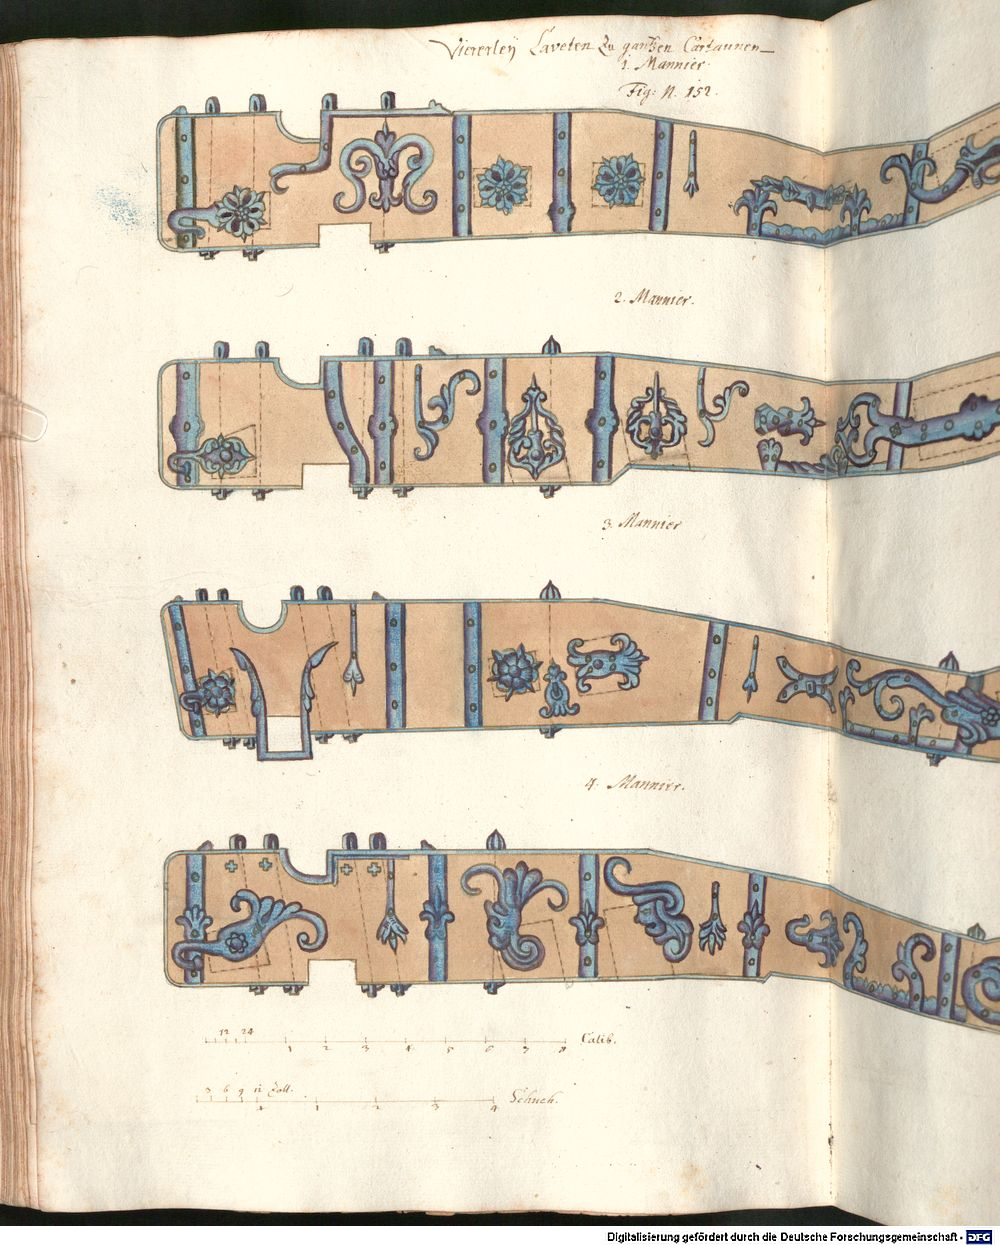 Viererleÿ Laveten Zu gantzen Cartaunen
1. Mannier.
Fig: N. 152.
2. Mannier.
3. Mannier
4. Mannier.
12 24
1 2 3 4 5 6 7 8 Calib.
3 6 9 12 Zoll.
1 2 3 4 Schuch.
Digitalisierung gefördert durch die Deutsche Forschungsgemeinschaft - DFG